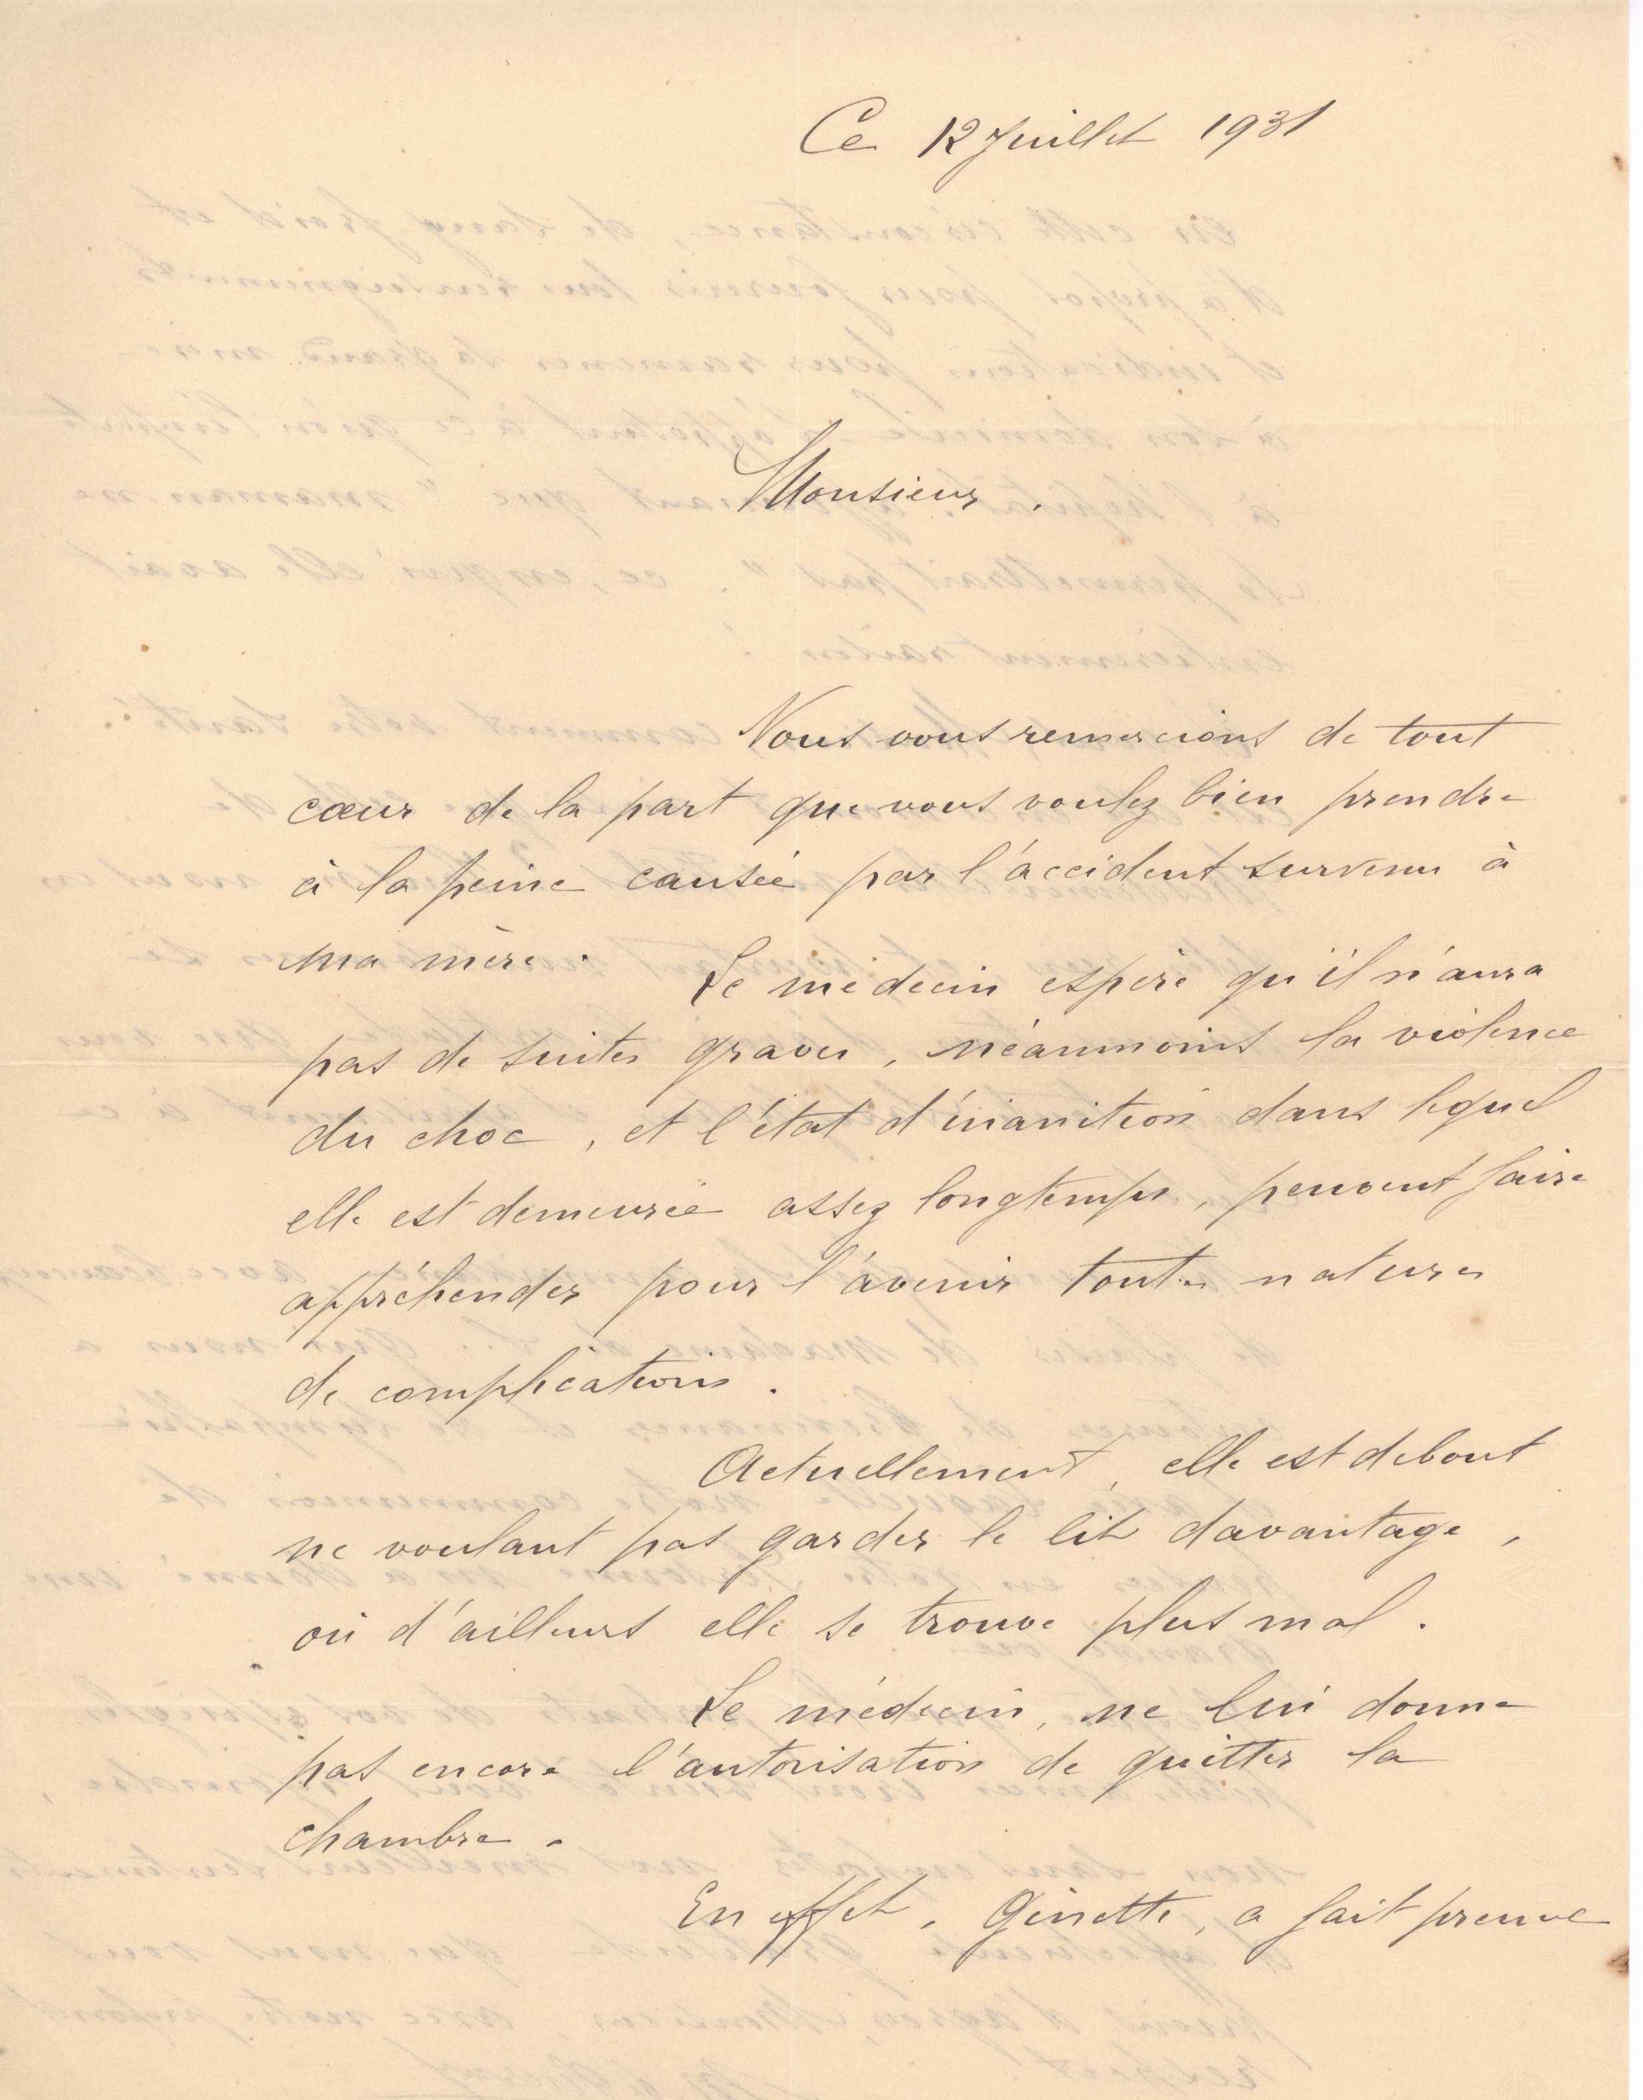 Ce 12 Juillet 1931
Monsieur.
Nous vous remercions de tout
cœur de la part que vous voulez bien prendre
à la peine causée par l'accident survenu à
ma mère.
Le médecin espère qu'il n'aura
pas de suites graves, néanmoins la violence
du choc, et l'état d'inanition dans lequel
elle est demeurée assez longtemps, peuvent faire
appréhender pour l'avenir toutes natures
de complications.
Actuellement, elle est debout
ne voulant pas garder le lit davantage,
où d'ailleurs elle se trouve plus mal.
Le médecin, ne lui donne
pas encore l'autorisation de quitter la
chambre.
En effet, Ginette, a fait preuve